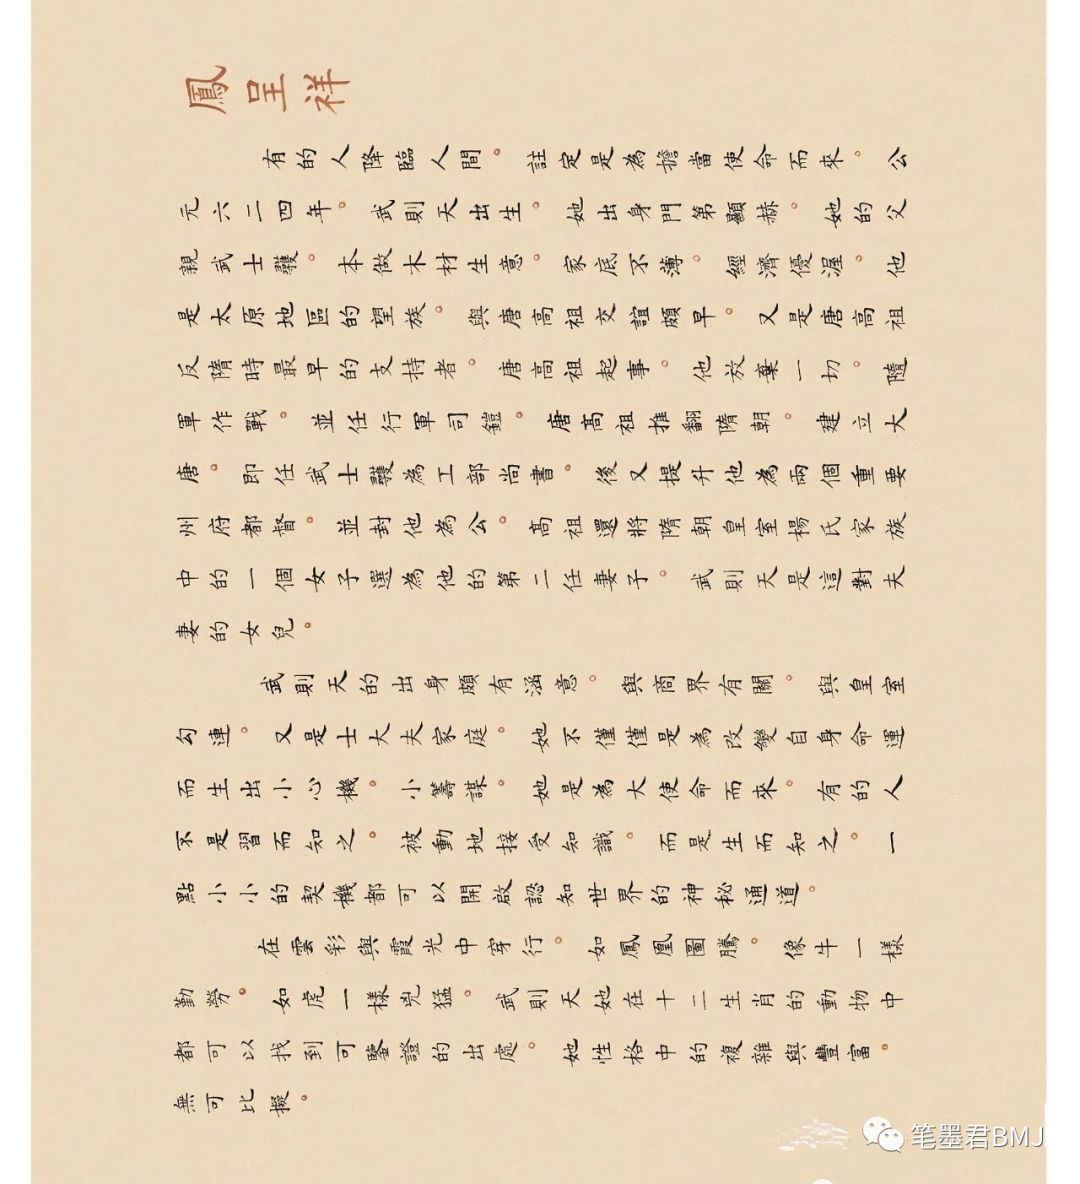 鳳呈祥
有的人降臨人間。註定是為擔當使命而來。公
元六二四年。武則天出生。她出身門第顯赫。她的父
親武士彠。本做木材生意。家底不薄。經濟優渥。他
是太原地區的望族。與唐高祖交誼頗早。又是唐高祖
反隋時最早的支持者。唐高祖起事。他放棄一切。隨
軍作戰。並任行軍司鎧。唐髙祖推翻隋朝。建立大
唐。即任武士彠為工部尚書。後又提升他為兩個重要
州府都督。並封他為公。高祖還將隋朝皇室楊氏家族
中的一個女子選為他的第二任妻子。武則天是這對夫
妻的女兒。
武則天的出身頗有涵意。與商界有關。與皇室
勾連。又是士大夫家庭。她不僅僅是為改變自身命運
而生出小心機。小籌謀。她是為大使命而來。有的人
不是習而知之。被動地接受知識。而是生而知之。一
點小小的契機都可以開啟認知世界的神秘通道。
在雲彩與霞光中穿行。如鳳凰圖騰。像牛一樣
勤勞。如虎一樣兇猛。武則天她在十二生肖的動物中
都可以找到可鑒證的出處。她性格中的複雜與豐富。
無可比擬。
笔墨君BMJ